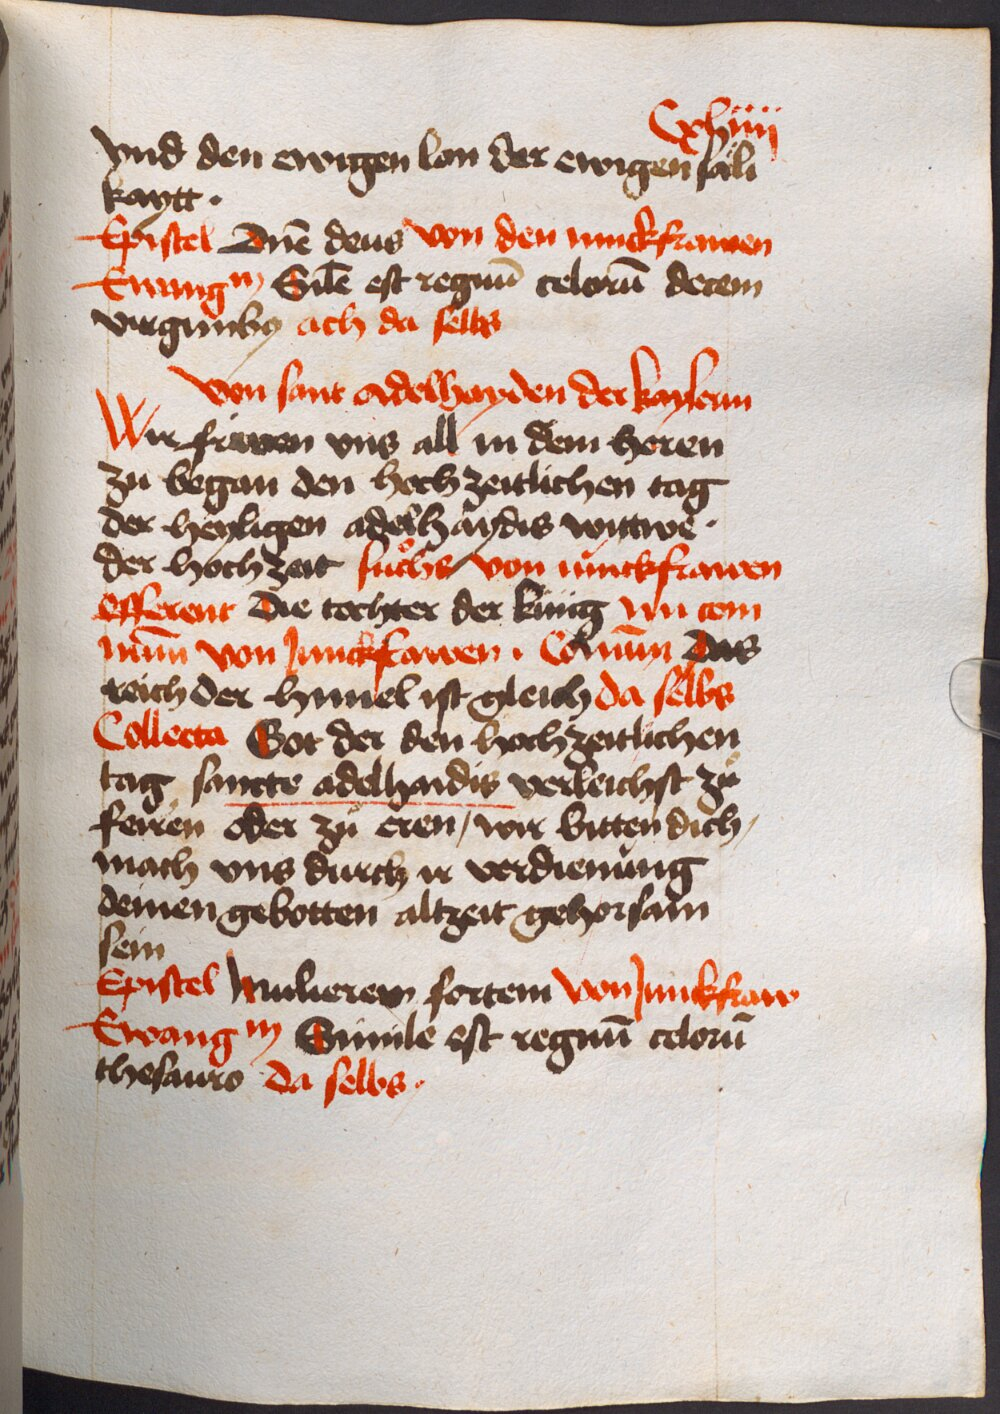 Cxliiii
vnd den ewigen lon der ewigen säli
kaytt .
Epistel Dn̄e deus von den iunckfrawen
Ewangm Sil̄e est regnū celorū decem
virginibꝫ ach da selbs
von sant adelhayden der kayserin
Wir friwen vns all in dem heren
zu began den hochzeitlichen tag
der heyligen adelhaydis wittwe .
der hochzeit sůchs von iunckfrawen
offerent Die tochter der künig
von Junckfrawen . Com̄un Das
reich der himel ist gleich da selbs
Collecta Got der den hochzeitlichen
tag sancte adelhaidis verleichst zů
feiren oder zů eren / wir bitten dich /
mach vns durch ir verdienung
deinen gebotten altzeit gehorsam
sein
Epistel Mulierem fortem von Junckfraw
Ewangm Simile est regnū celorū
thesauro da selbs .